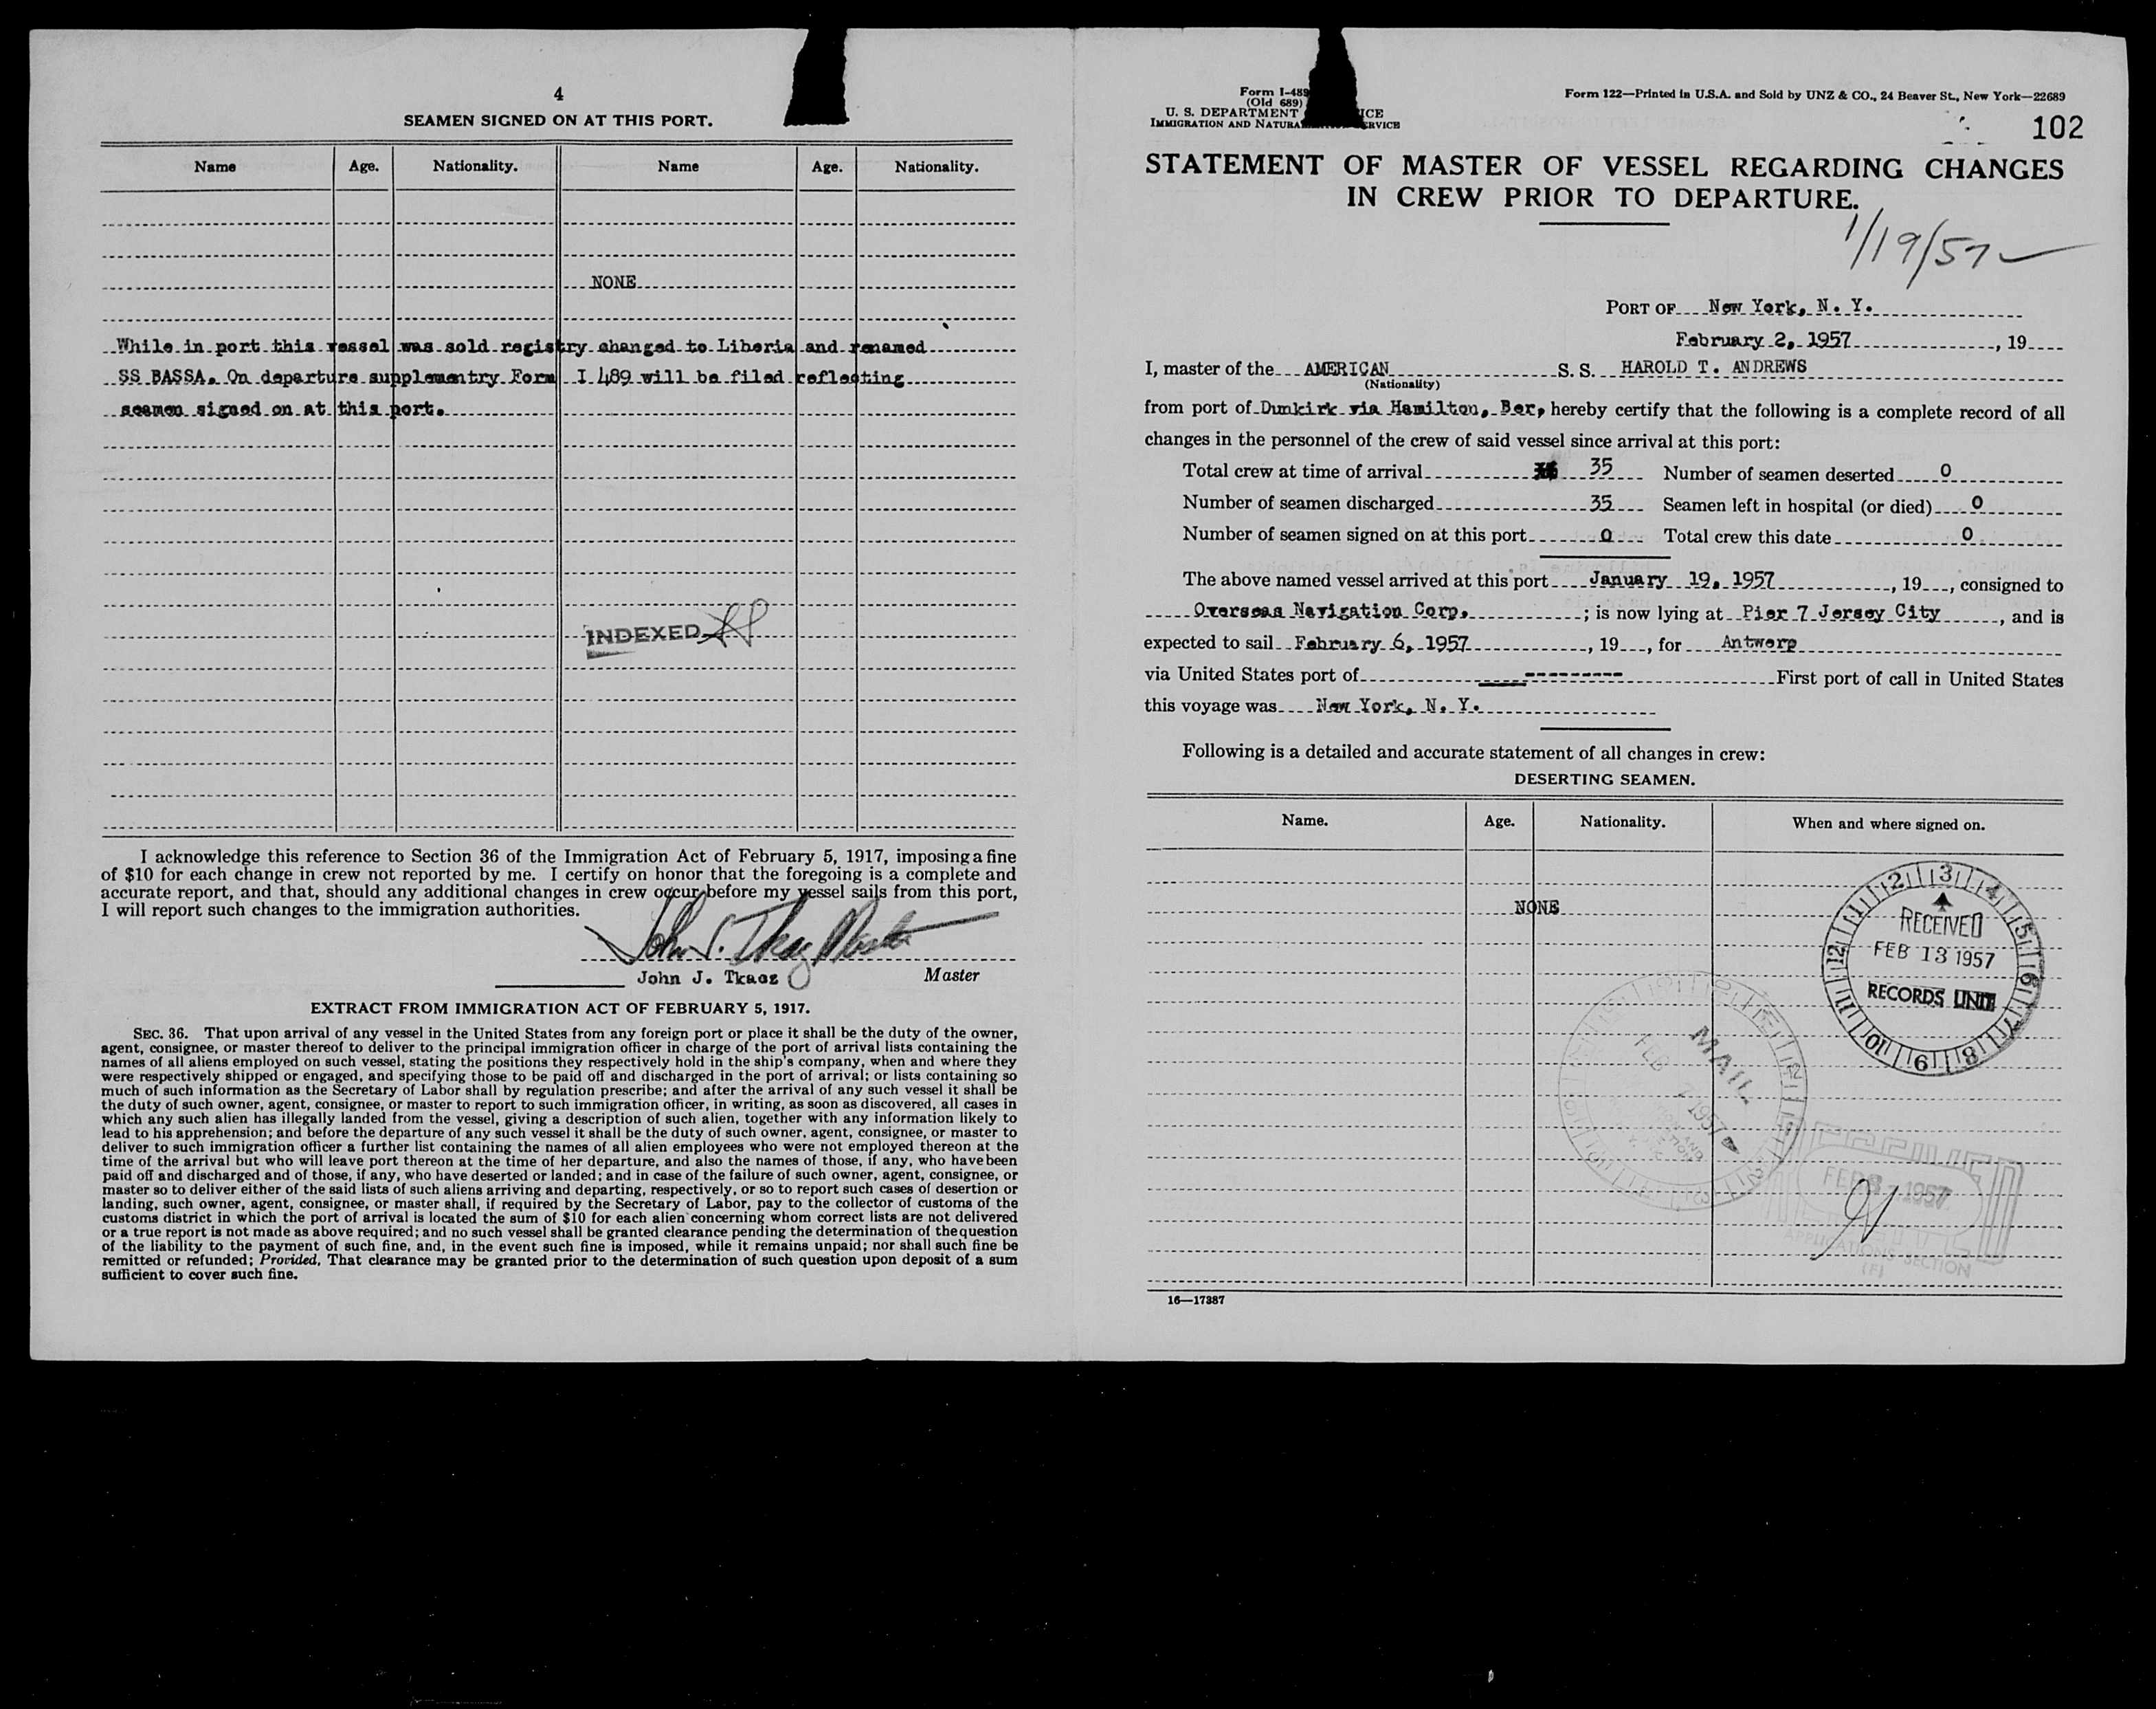 4
SEAMEN SIGNED ON AT THIS PORT.
Name Age. Nationality. Name Age. Nationality.
NONE
While in port this vessel was sold registry changed to Liberia and renamed
SS BASSA. On departure supplementry Form I 489 will be filed reflecting
seamen signed on at this port.
INDEXED
I acknowledge this reference to Section 36 of the Immigration Act of February 5, 1917, imposing a fine
of $10 for each change in crew not reported by me. I certify on honor that the foregoing is a complete and
accurate report, and that, should any additional changes in crew occur before my vessel sails from this port,
I will report such changes to the immigration authorities.
John J. Tkacz Master
John J. Tkacz Master
EXTRACT FROM IMMIGRATION ACT OF FEBRUARY 5, 1917.
SEC. 36. That upon arrival of any vessel in the United States from any foreign port or place it shall be the duty of the owner,
agent, consignee, or master thereof to deliver to the principal immigration officer in charge of the port of arrival lists containing the
names of all aliens employed on such vessel, stating the positions they respectively hold in the ship's company, when and where they
were respectively shipped or engaged, and specifying those to be paid off and discharged in the port of arrival; or lists containing so
much of such information as the Secretary of Labor shall by regulation prescribe; and after the arrival of any such vessel it shall be
the duty of such owner, agent, consignee, or master to report to such immigration officer, in writing, as soon as discovered, all cases in
which any such alien has illegally landed from the vessel, giving a description of such alien, together with any information likely to
lead to his apprehension; and before the departure of any such vessel it shall be the duty of such owner, agent, consignee, or master to
deliver to such immigration officer a further list containing the names of all alien employees who were not employed thereon at the
time of the arrival but who will leave port thereon at the time of her departure, and also the names of those, if any, who have been
paid off and discharged and of those, if any, who have deserted or landed; and in case of the failure of such owner, agent, consignee, or
master so to deliver either of the said lists of such aliens arriving and departing, respectively, or so to report such cases of desertion or
landing, such owner, agent, consignee, or master shall, if required by the Secretary of Labor, pay to the collector of customs of the
customs district in which the port of arrival is located the sum of $10 for each alien concerning whom correct lists are not delivered
or a true report is not made as above required; and no such vessel shall be granted clearance pending the determination of the question
of the liability to the payment of such fine, and, in the event such fine is imposed, while it remains unpaid; nor shall such fine be
remitted or refunded; Provided, That clearance may be granted prior to the determination of such question upon deposit of a sum
sufficient to cover such fine.
Form I-489
(Old 689)
U. S. DEPARTMENT
IMMIGRATION AND
Form 122—Printed in U.S.A. and Sold by UNZ & CO., 24 Beaver St., New York—22689
102
STATEMENT OF MASTER OF VESSEL REGARDING CHANGES
IN CREW PRIOR TO DEPARTURE.
1/19/57
PORT OF New York, N. Y.
February 2, 1957, 19
I, master of the AMERICAN S. S. HAROLD T. ANDREWS
(Nationality)
from port of Dunkirk via Hamilton, Ber, hereby certify that the following is a complete record of all
changes in the personnel of the crew of said vessel since arrival at this port:
Total crew at time of arrival 35 Number of seamen deserted 0
Number of seamen discharged 35 Seamen left in hospital (or died) 0
Number of seamen signed on at this port 0 Total crew this date 0
The above named vessel arrived at this port January 19, 1957, 19, consigned to
Overseas Navigation Corp. ; is now lying at Pier 7 Jersey City, and is
expected to sail February 6, 1957, 19, for Antwerp
via United States port of --------- First port of call in United States
this voyage was New York, N. Y.
Following is a detailed and accurate statement of all changes in crew:
DESERTING SEAMEN.
Name. Age. Nationality. When and where signed on.
NONE
12 1 2 3 4 5 6 7 8 9 10 11
RECEIVED
FEB 13 1957
RECORDS UNIT
MAIL
FEB 7 1957
FEB 7 1957
APPLICATIONS SECTION
(F)
16—17387